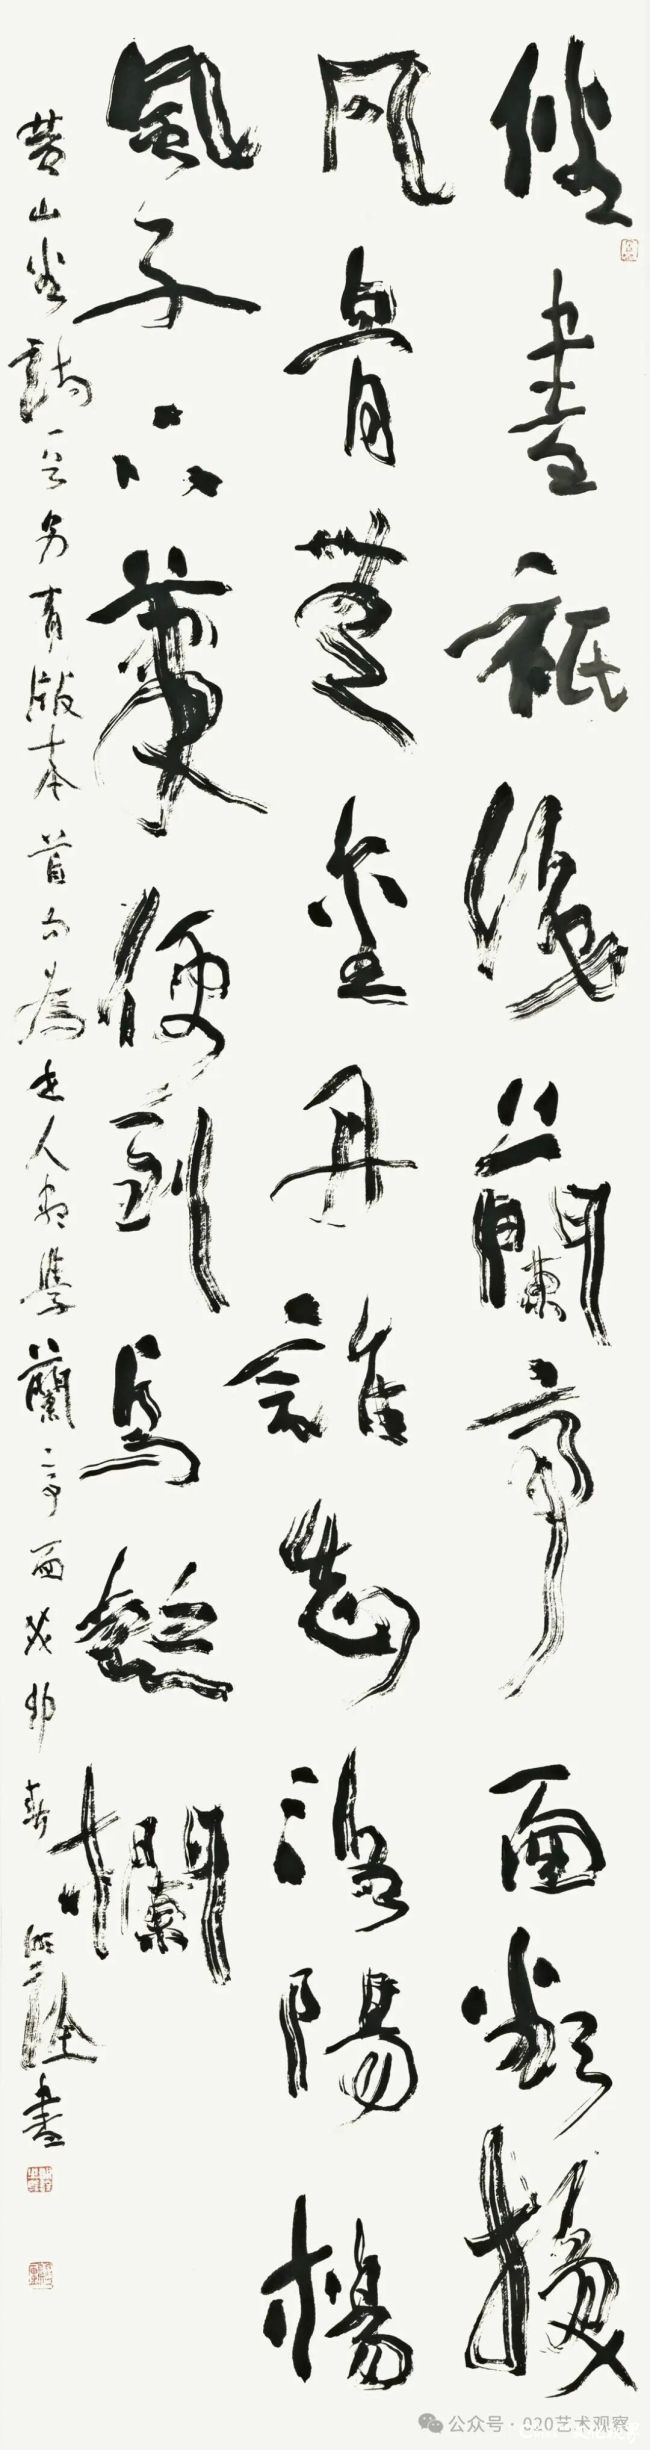 俗書祇識蘭亭面欲換
凡骨無金丹誰知洛陽楊
風子下筆便到烏絲欄
黄山谷詩一首另有版本首句為世人盡學蘭亭面癸卯春 書
公众号 · 020艺术观察